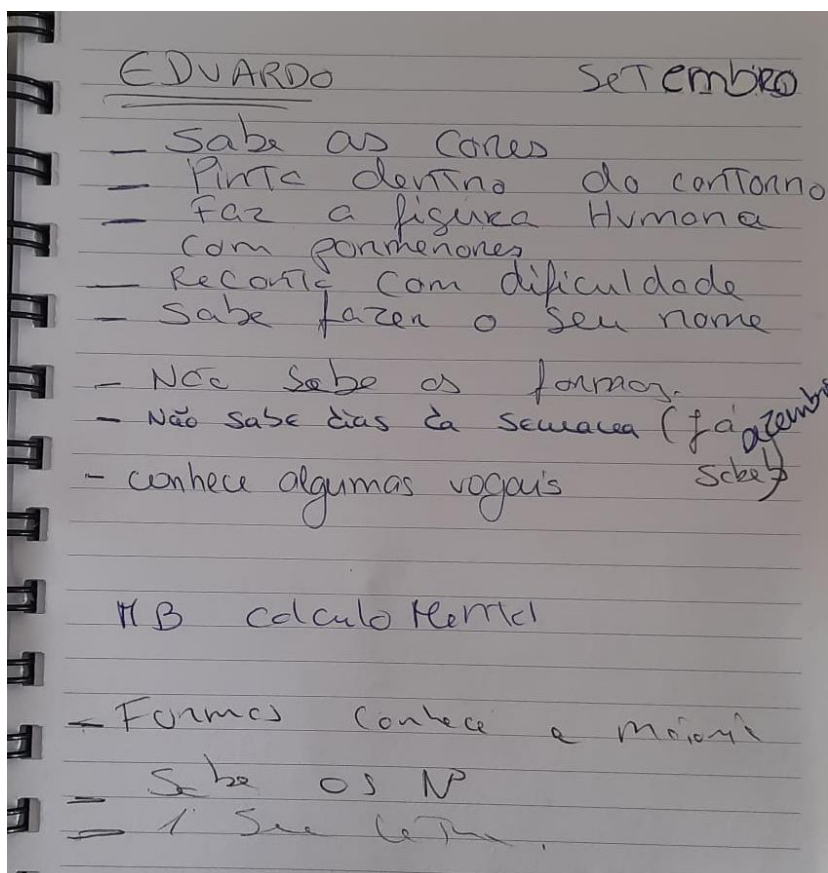 EDUARDO SETEMBRO
- Sabe as cores
- Pinta dentro do contorno
- Faz a figura Humana
com pormenores
- Recorta com dificuldade
- Sabe fazer o seu nome
- Não Sabe as formas.
- Não sabe dias da semana (já
sabe)
- conhece algumas vogais
MB calculo Mental
- Formas conhece a maioria
- Sabe os Nº